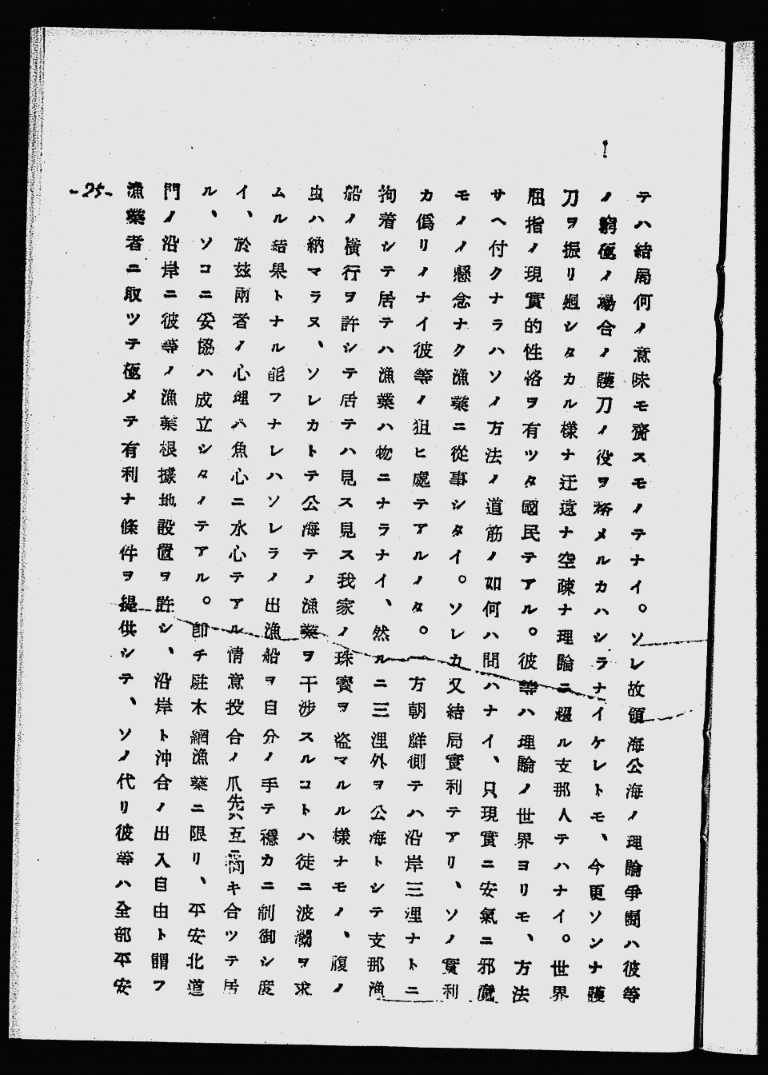 テハ結局何ノ意味モ齎スモノテナイ。ソレ故領海公海ノ理論爭鬪ハ彼等
ノ窮極ノ場合ノ護刀ノ役ヲ務メルカハシラナイケレトモ、今更ソンナ護
刀ヲ振リ廻シタカル樣ナ迂遠ナ空疎ナ理論ニ綴ル支那人テハナイ。世界
屈指ノ現實的性格ヲ有ツタ國民テアル。彼等ハ理論ノ世界ヨリモ、方法
サヘ付クナラハソノ方法ノ道筋ノ如何ハ問ハナイ、只現實ニ安氣ニ邪魔
モノノ懸念ナク漁業ニ從事シタイ。ソレカ又結局實利テアリ、ソノ實利
カ僞リノナイ彼等ノ狙ヒ處テアルノタ。一方朝鮮側テハ沿岸三浬ナトニ
拘着シテ居テハ漁業ハ物ニナラナイ、然ルニ三浬外ヲ公海トシテ支那漁
船ノ橫行ヲ許シテ居テハ見ス見ス我家ノ珠寶ヲ盜マルル樣ナモノ、腹ノ
虫ハ納マラヌ、ソレカトテ公海テノ漁業ヲ干涉スルコトハ徒ニ波瀾ヲ求
ムル結果トナル能フナレハソレラノ出漁船ヲ自分ノ手テ穩カニ制御シ度
イ、於玆兩者ノ心理ハ魚心ニ水心テアル情意投合ノ爪先互ニ向キ合ツテ居
ル、ソコニ妥協ハ成立シタノテアル。卽チ駐木網漁業ニ限リ、平安北道
門ノ沿岸ニ彼等ノ漁業根據地設置ヲ許シ、沿岸ト沖合ノ出入自由ト謂フ
漁業者ニ取ツテ極メテ有利ナ條件ヲ提供シテ、ソノ代リ彼等ハ全部平安
-25-